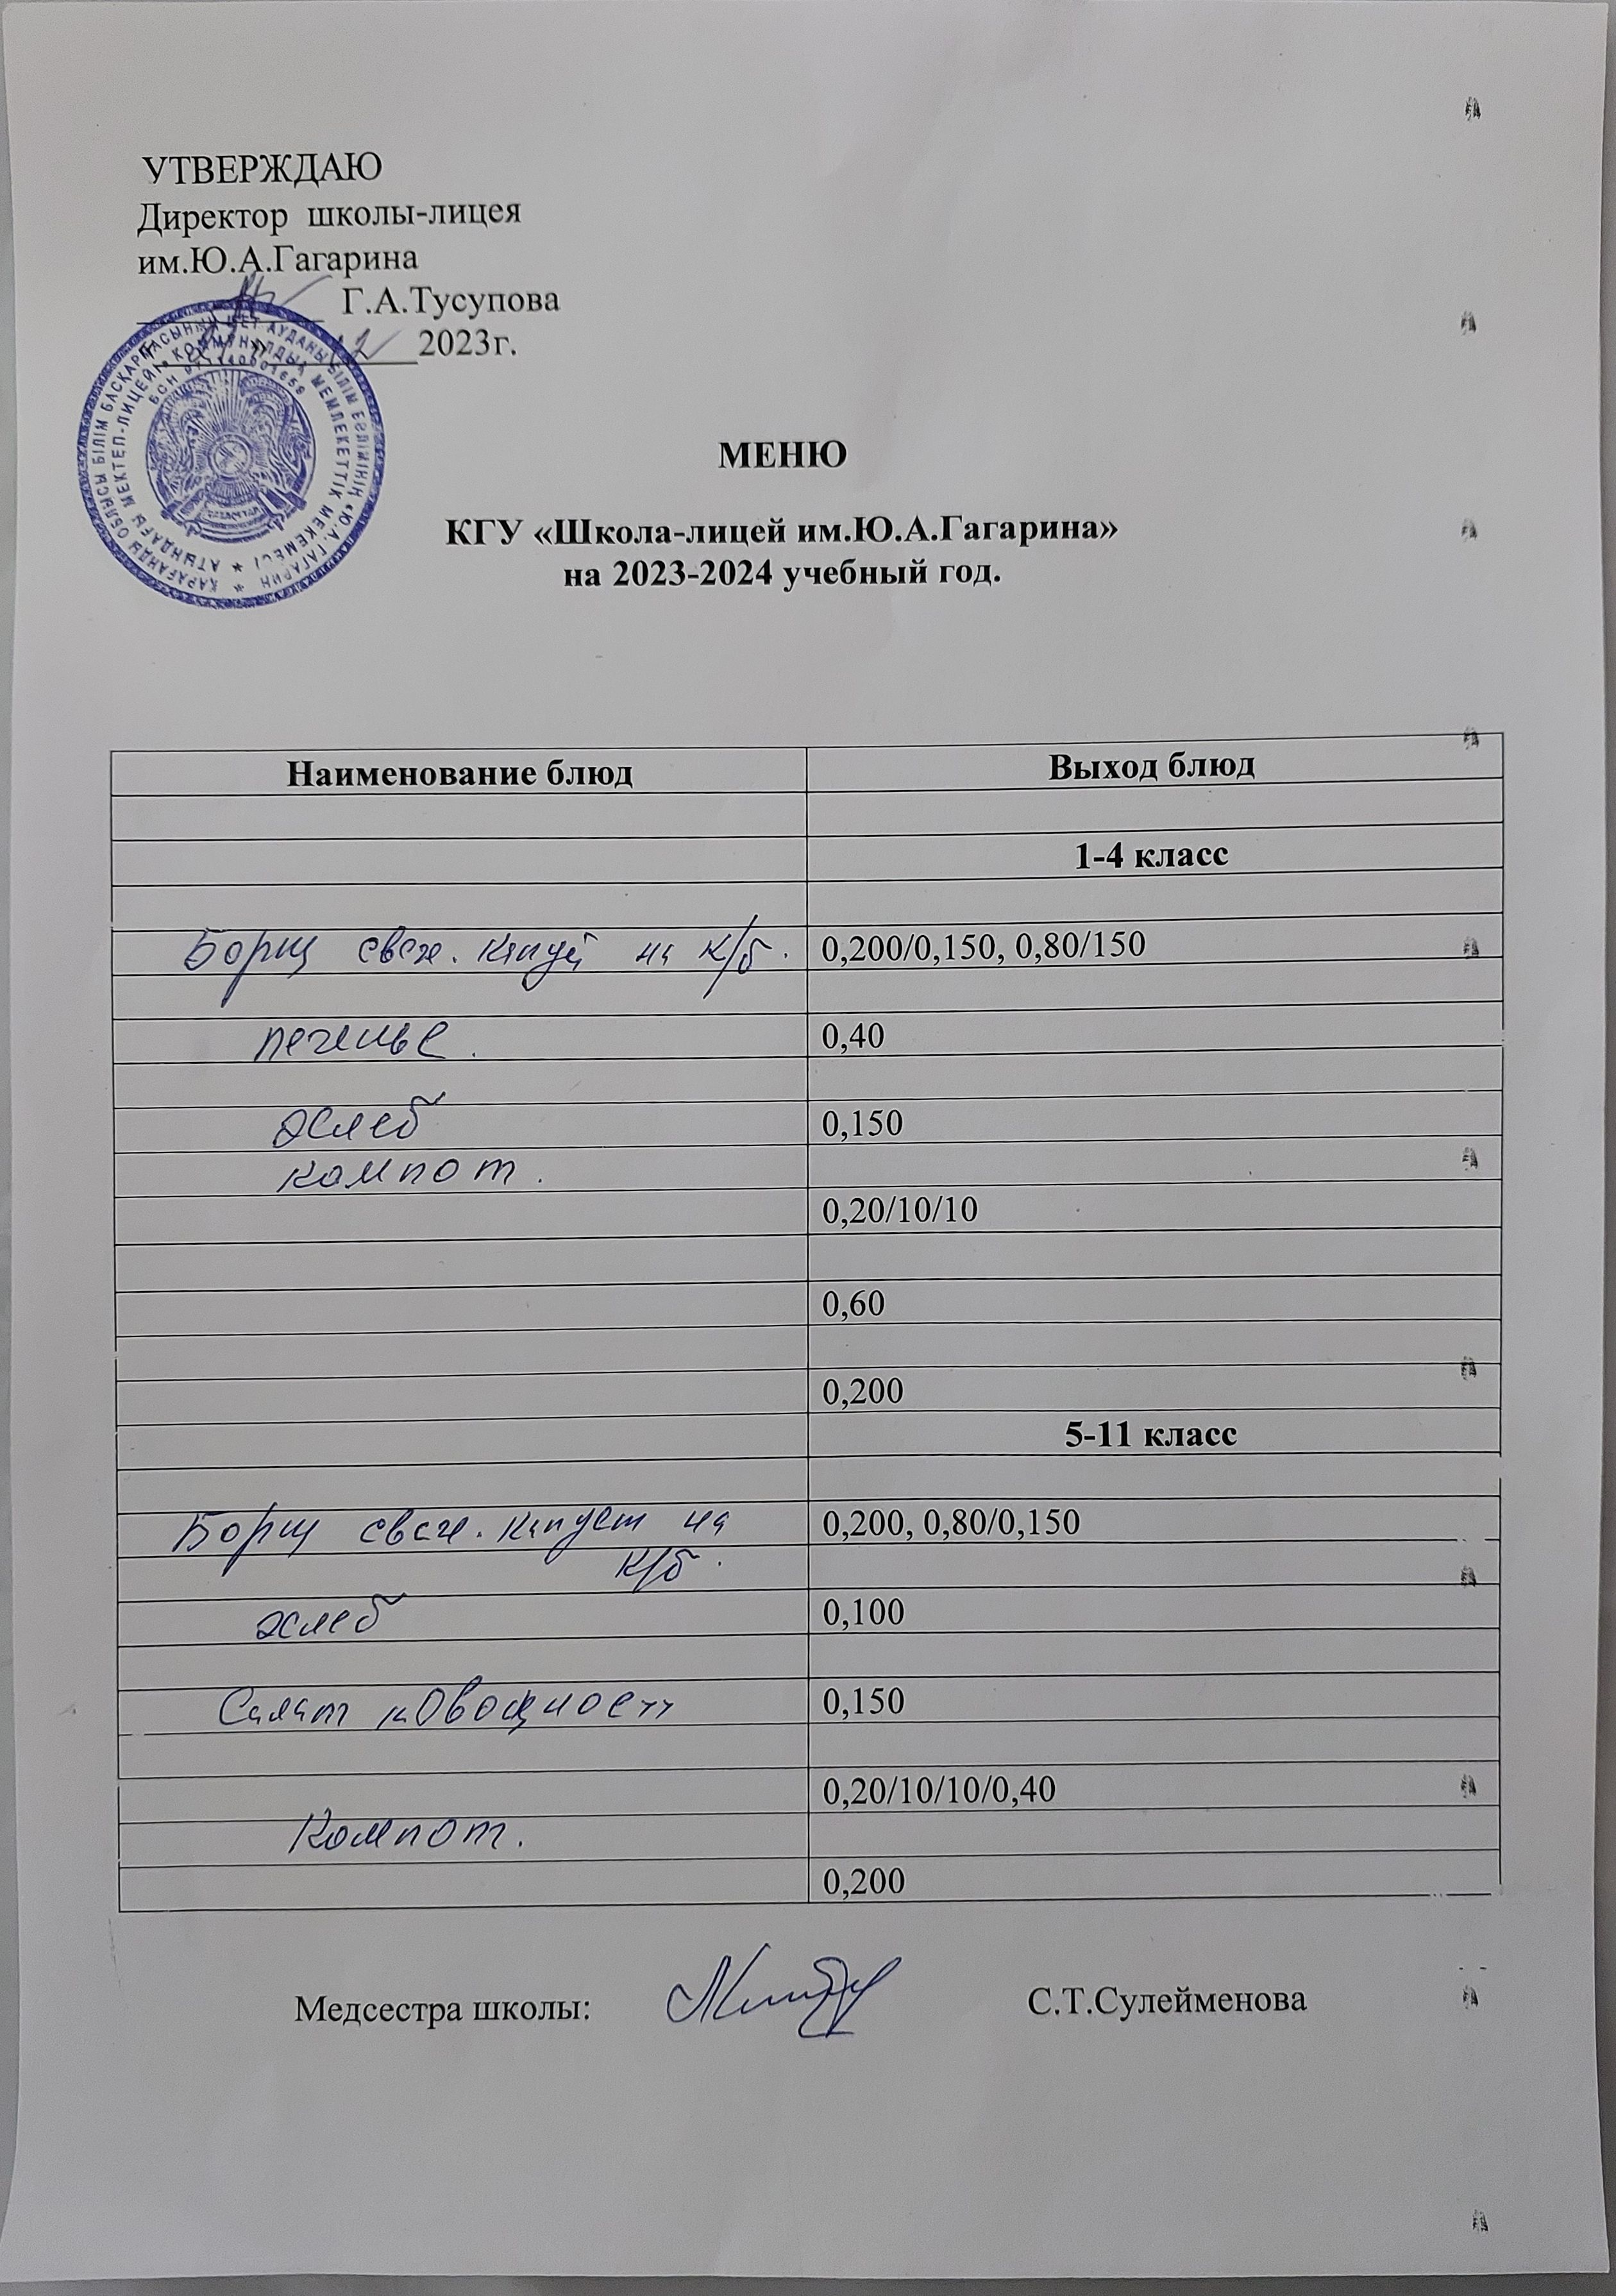 УТВЕРЖДАЮ
Директор школы-лицея
им.Ю.А.Гагарина
Г.А.Тусупова
2023г.
ҚАРАҒАНДЫ ОБЛЫСЫ БІЛІМ БАСҚАРМАСЫНЫҢ ШЕТ АУДАНЫ БІЛІМ БӨЛІМІНІҢ «Ю.А.ГАГАРИН
АТЫНДАҒЫ МЕКТЕП-ЛИЦЕЙІ» КОММУНАЛДЫҚ МЕМЛЕКЕТТІК МЕКЕМЕСІ
МЕНЮ
КГУ «Школа-лицей им.Ю.А.Гагарина»
на 2023-2024 учебный год.
Наименование блюд Выход блюд
1-4 класс
Борщ свеж. на к/б. 0,200/0,150, 0,80/150
печенье. 0,40
хлеб 0,150
компот.
0,20/10/10
0,60
0,200
5-11 класс
Борщ свеж. капуст на 0,200, 0,80/0,150
к/б.
хлеб 0,100
Салат 0,150
0,20/10/10/0,40
Компот.
0,200
Медсестра школы: С.Т.Сулейменова